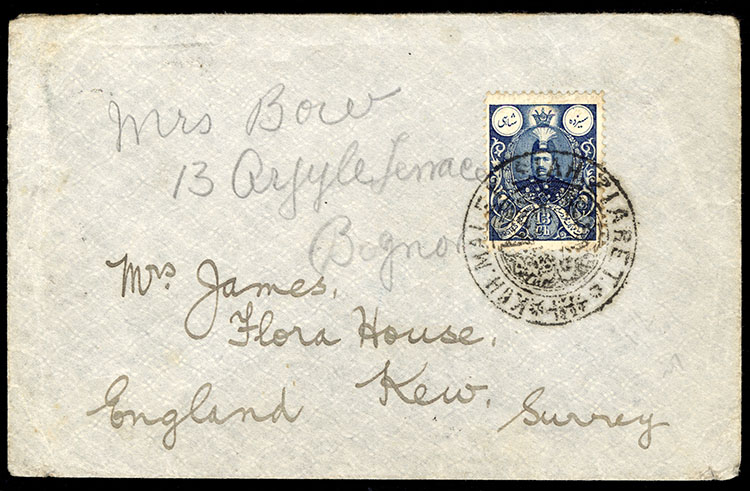 Mrs Bow
13 Argyle Terrace
Bognor
سیزده شاهی
13 Ch
KUH.MALEK-SIAH-ZIARET.
Mrs. James,
Flora House,
Kew,
Surrey
England